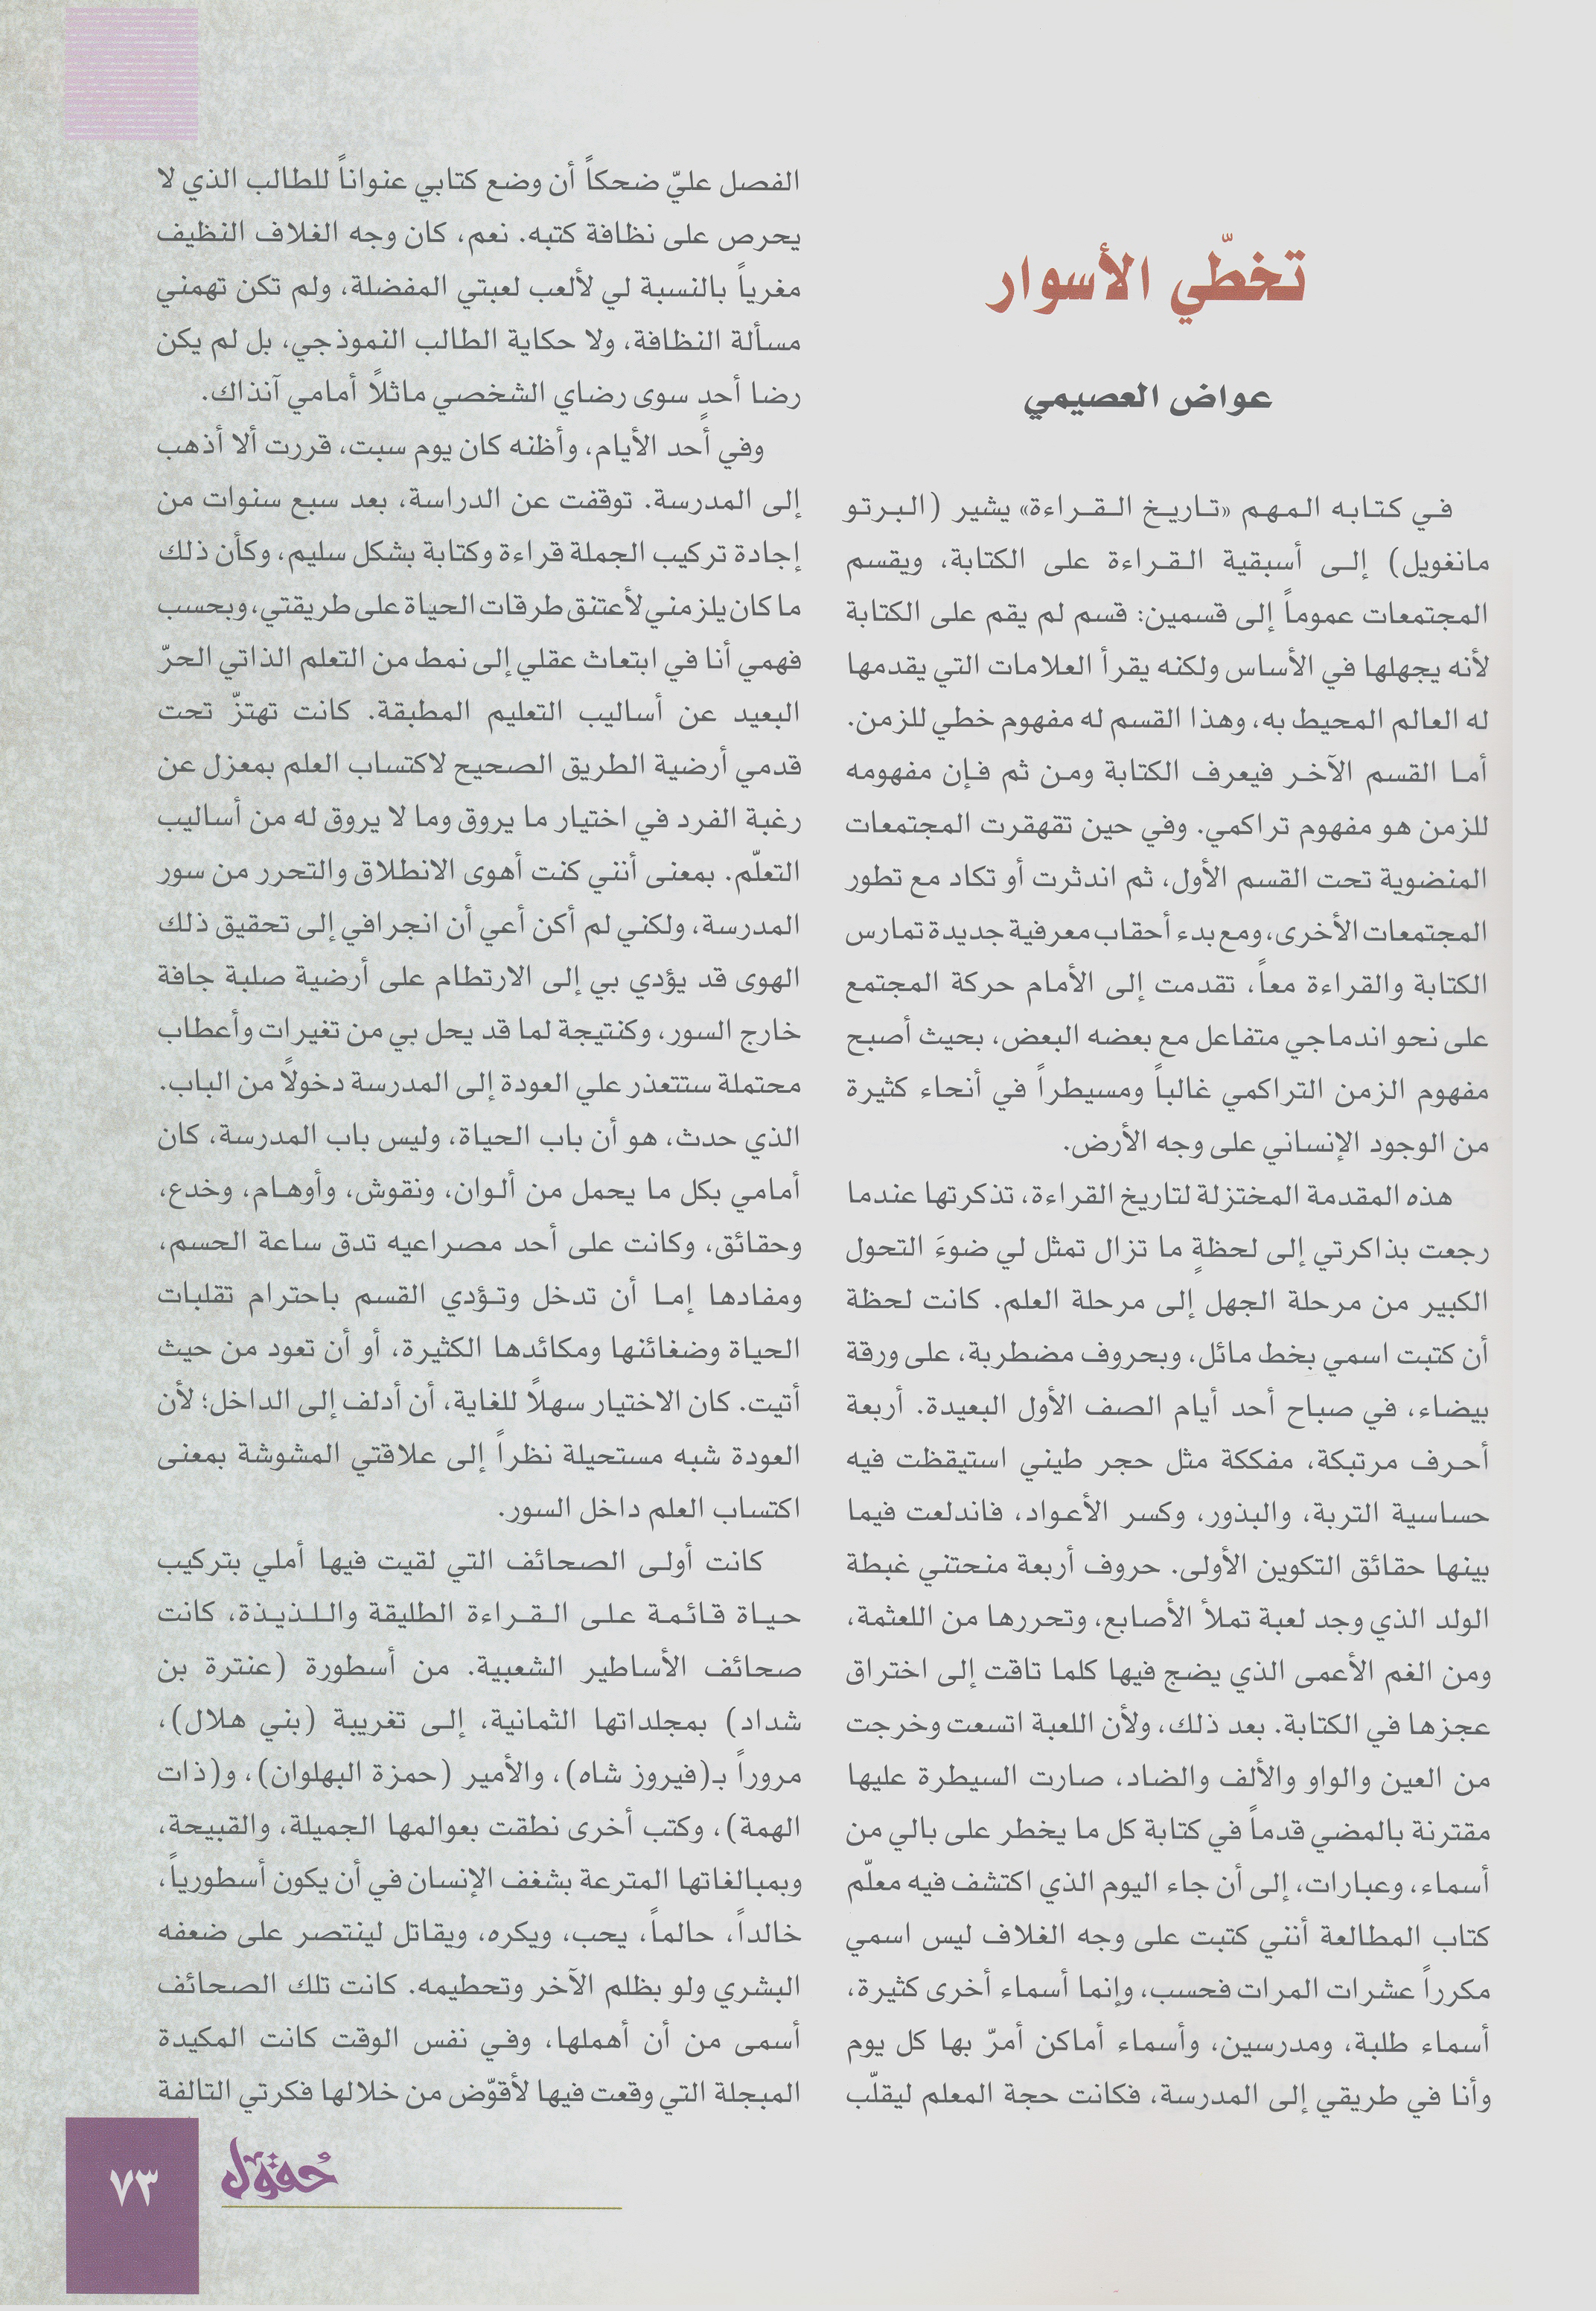 تخطّي الأسوار
عواض العصيمي
في كتابه المهم «تاريخ القراءة» يشير (البرتو
مانغويل) إلى أسبقية القراءة على الكتابة، ويقسم
المجتمعات عموماً إلى قسمين: قسم لم يقم على الكتابة
لأنه يجهلها في الأساس ولكنه يقرأ العلامات التي يقدمها
له العالم المحيط به، وهذا القسم له مفهوم خطي للزمن.
أما القسم الآخر فيعرف الكتابة ومن ثم فإن مفهومه
للزمن هو مفهوم تراكمي. وفي حين تقهقرت المجتمعات
المنضوية تحت القسم الأول، ثم اندثرت أو تكاد مع تطور
المجتمعات الأخرى، ومع بدء أحقاب معرفية جديدة تمارس
الكتابة والقراءة معاً، تقدمت إلى الأمام حركة المجتمع
على نحو اندماجي متفاعل مع بعضه البعض، بحيث أصبح
مفهوم الزمن التراكمي غالباً ومسيطراً في أنحاء كثيرة
من الوجود الإنساني على وجه الأرض.
هذه المقدمة المختزلة لتاريخ القراءة، تذكرتها عندما
رجعت بذاكرتي إلى لحظةٍ ما تزال تمثل لي ضوءَ التحول
الكبير من مرحلة الجهل إلى مرحلة العلم. كانت لحظة
أن كتبت اسمي بخط مائل، وبحروف مضطربة، على ورقة
بيضاء، في صباح أحد أيام الصف الأول البعيدة. أربعة
أحرف مرتبكة، مفككة مثل حجر طيني استيقظت فيه
حساسية التربة، والبذور، وكسر الأعواد، فاندلعت فيما
بينها حقائق التكوين الأولى. حروف أربعة منحتني غبطة
الولد الذي وجد لعبة تملأ الأصابع، وتحررها من اللعثمة،
ومن الغم الأعمى الذي يضج فيها كلما تاقت إلى اختراق
عجزها في الكتابة. بعد ذلك، ولأن اللعبة اتسعت وخرجت
من العين والواو والألف والضاد، صارت السيطرة عليها
مقترنة بالمضي قدماً في كتابة كل ما يخطر على بالي من
أسماء، وعبارات، إلى أن جاء اليوم الذي اكتشف فيه معلّم
كتاب المطالعة أنني كتبت على وجه الغلاف ليس اسمي
مكرراً عشرات المرات فحسب، وإنما أسماء أخرى كثيرة،
أسماء طلبة، ومدرسين، وأسماء أماكن أمرّ بها كل يوم
وأنا في طريقي إلى المدرسة، فكانت حجة المعلم ليقلّب
الفصل عليّ ضحكاً أن وضع كتابي عنواناً للطالب الذي لا
يحرص على نظافة كتبه. نعم، كان وجه الغلاف النظيف
مغرياً بالنسبة لي لألعب لعبتي المفضلة، ولم تكن تهمني
مسألة النظافة، ولا حكاية الطالب النموذجي، بل لم يكن
رضا أحدٍ سوى رضاي الشخصي ماثلاً أمامي آنذاك.
وفي أحد الأيام، وأظنه كان يوم سبت، قررت ألا أذهب
إلى المدرسة. توقفت عن الدراسة، بعد سبع سنوات من
إجادة تركيب الجملة قراءة وكتابة بشكل سليم، وكأن ذلك
ما كان يلزمني لأعتنق طرقات الحياة على طريقتي، وبحسب
فهمي أنا في ابتعاث عقلي إلى نمط من التعلم الذاتي الحرّ
البعيد عن أساليب التعليم المطبقة. كانت تهتزّ تحت
قدمي أرضية الطريق الصحيح لاكتساب العلم بمعزل عن
رغبة الفرد في اختيار ما يروق وما لا يروق له من أساليب
التعلّم. بمعنى أنني كنت أهوى الانطلاق والتحرر من سور
المدرسة، ولكني لم أكن أعي أن انجرافي إلى تحقيق ذلك
الهوى قد يؤدي بي إلى الارتطام على أرضية صلبة جافة
خارج السور، وكنتيجة لما قد يحل بي من تغيرات وأعطاب
محتملة ستتعذر علي العودة إلى المدرسة دخولاً من الباب.
الذي حدث، هو أن باب الحياة، وليس باب المدرسة، كان
أمامي بكل ما يحمل من ألوان، ونقوش، وأوهام، وخدع،
وحقائق، وكانت على أحد مصراعيه تدق ساعة الحسم،
ومفادها إما أن تدخل وتؤدي القسم باحترام تقلبات
الحياة وضغائنها ومكائدها الكثيرة، أو أن تعود من حيث
أتيت. كان الاختيار سهلاً للغاية، أن أدلف إلى الداخل؛ لأن
العودة شبه مستحيلة نظراً إلى علاقتي المشوشة بمعنى
اكتساب العلم داخل السور.
كانت أولى الصحائف التي لقيت فيها أملي بتركيب
حياة قائمة على القراءة الطليقة واللذيذة، كانت
صحائف الأساطير الشعبية. من أسطورة (عنترة بن
شداد) بمجلداتها الثمانية، إلى تغريبة (بني هلال)،
مروراً بـ(فيروز شاه)، والأمير (حمزة البهلوان)، و(ذات
الهمة)، وكتب أخرى نطقت بعوالمها الجميلة، والقبيحة،
وبمبالغاتها المترعة بشغف الإنسان في أن يكون أسطورياً،
خالداً، حالماً، يحب، ويكره، ويقاتل لينتصر على ضعفه
البشري ولو بظلم الآخر وتحطيمه. كانت تلك الصحائف
أسمى من أن أهملها، وفي نفس الوقت كانت المكيدة
المبجلة التي وقعت فيها لأقوّض من خلالها فكرتي التالفة
حُقول
٧٣